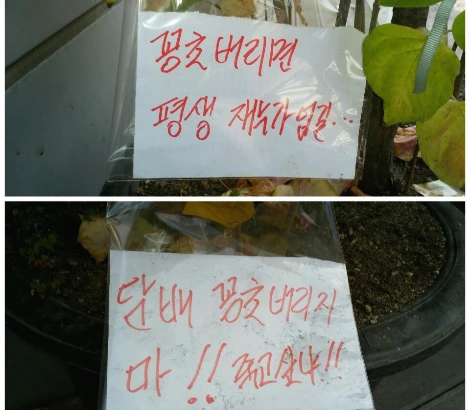 꽁초 버리면
평생 재수가 없길...
담배 꽁초 버리지
마!! 죽고 싶냐!!